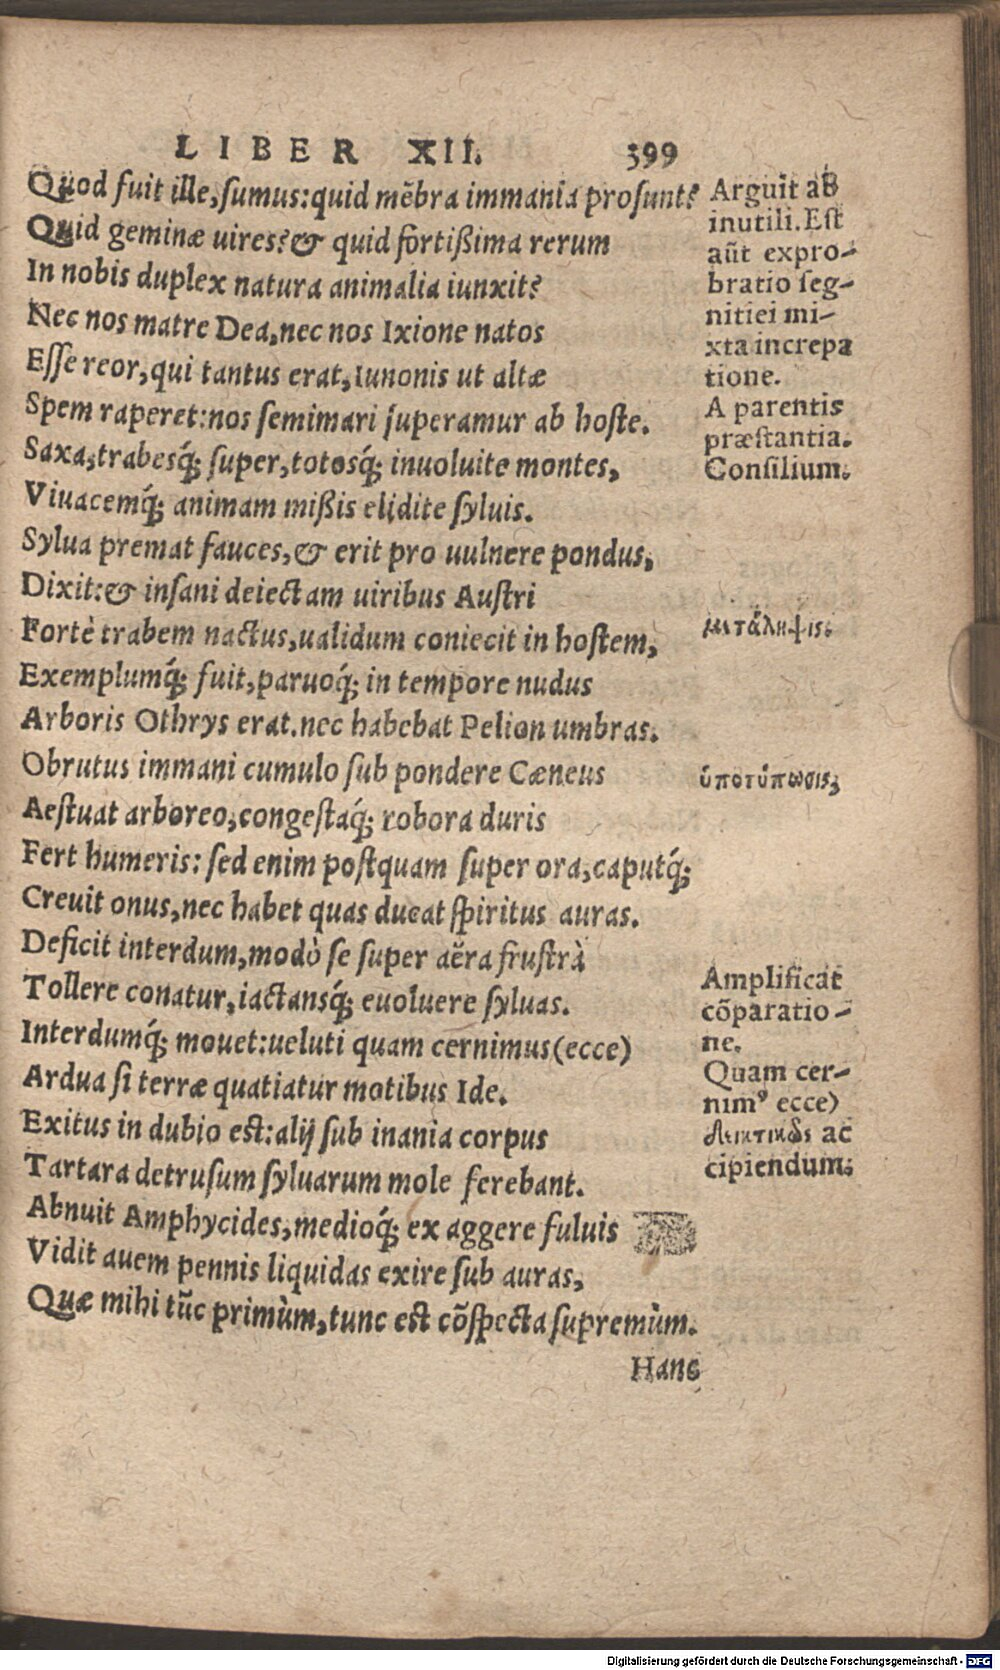 LIBER XII. 399
Quod fuit ille, sumus: quid mẽbra immania prosunt?
Quid geminæ uires? & quid fortißima rerum
In nobis duplex natura animalia iunxit?
Nec nos matre Dea, nec nos Ixione natos
Esse reor, qui tantus erat, Iunonis ut altæ
Spem raperet: nos semimari superamur ab hoste.
Saxa, trabesq́; super, totosq́; inuoluite montes,
Viuacemq́; animam mißis elidite syluis.
Sylua premat fauces, & erit pro uulnere pondus,
Dixit: & insani deiectam uiribus Austri
Fortè trabem nactus, ualidum coniecit in hostem,
Exemplumq́; fuit, paruoq́; in tempore nudus
Arboris Othrys erat. nec habebat Pelion umbras.
Obrutus immani cumulo sub pondere Cæneus
Aestuat arboreo, congestaq́; robora duris
Fert humeris: sed enim postquam super ora, caputq́;
Creuit onus, nec habet quas ducat spiritus auras.
Deficit interdum, modò se super aëra frustrà
Tollere conatur, iactansq́; euoluere syluas.
Interdumq́; mouet: ueluti quam cernimus (ecce)
Ardua si terræ quatiatur motibus Ide.
Exitus in dubio est: alij sub inania corpus
Tartara detrusum syluarum mole ferebant.
Abnuit Amphycides, medioq́; ex aggere fuluis
Vidit auem pennis liquidas exire sub auras,
Quæ mihi tũc primùm, tunc est cõspecta supremùm.
Hanc
Arguit ab
inutili. Est
aũt expro-
bratio seg-
nitiei mi-
xta increpa
tione.
A parentis
præstantia.
Consilium.
μετάληψις.
ὑποτύπωσις,
Amplificat
cõparatio-
ne.
Quam cer-
nimꝰ ecce)
δεικτικῶς ac
cipiendum.
Digitalisierung gefördert durch die Deutsche Forschungsgemeinschaft - DFG